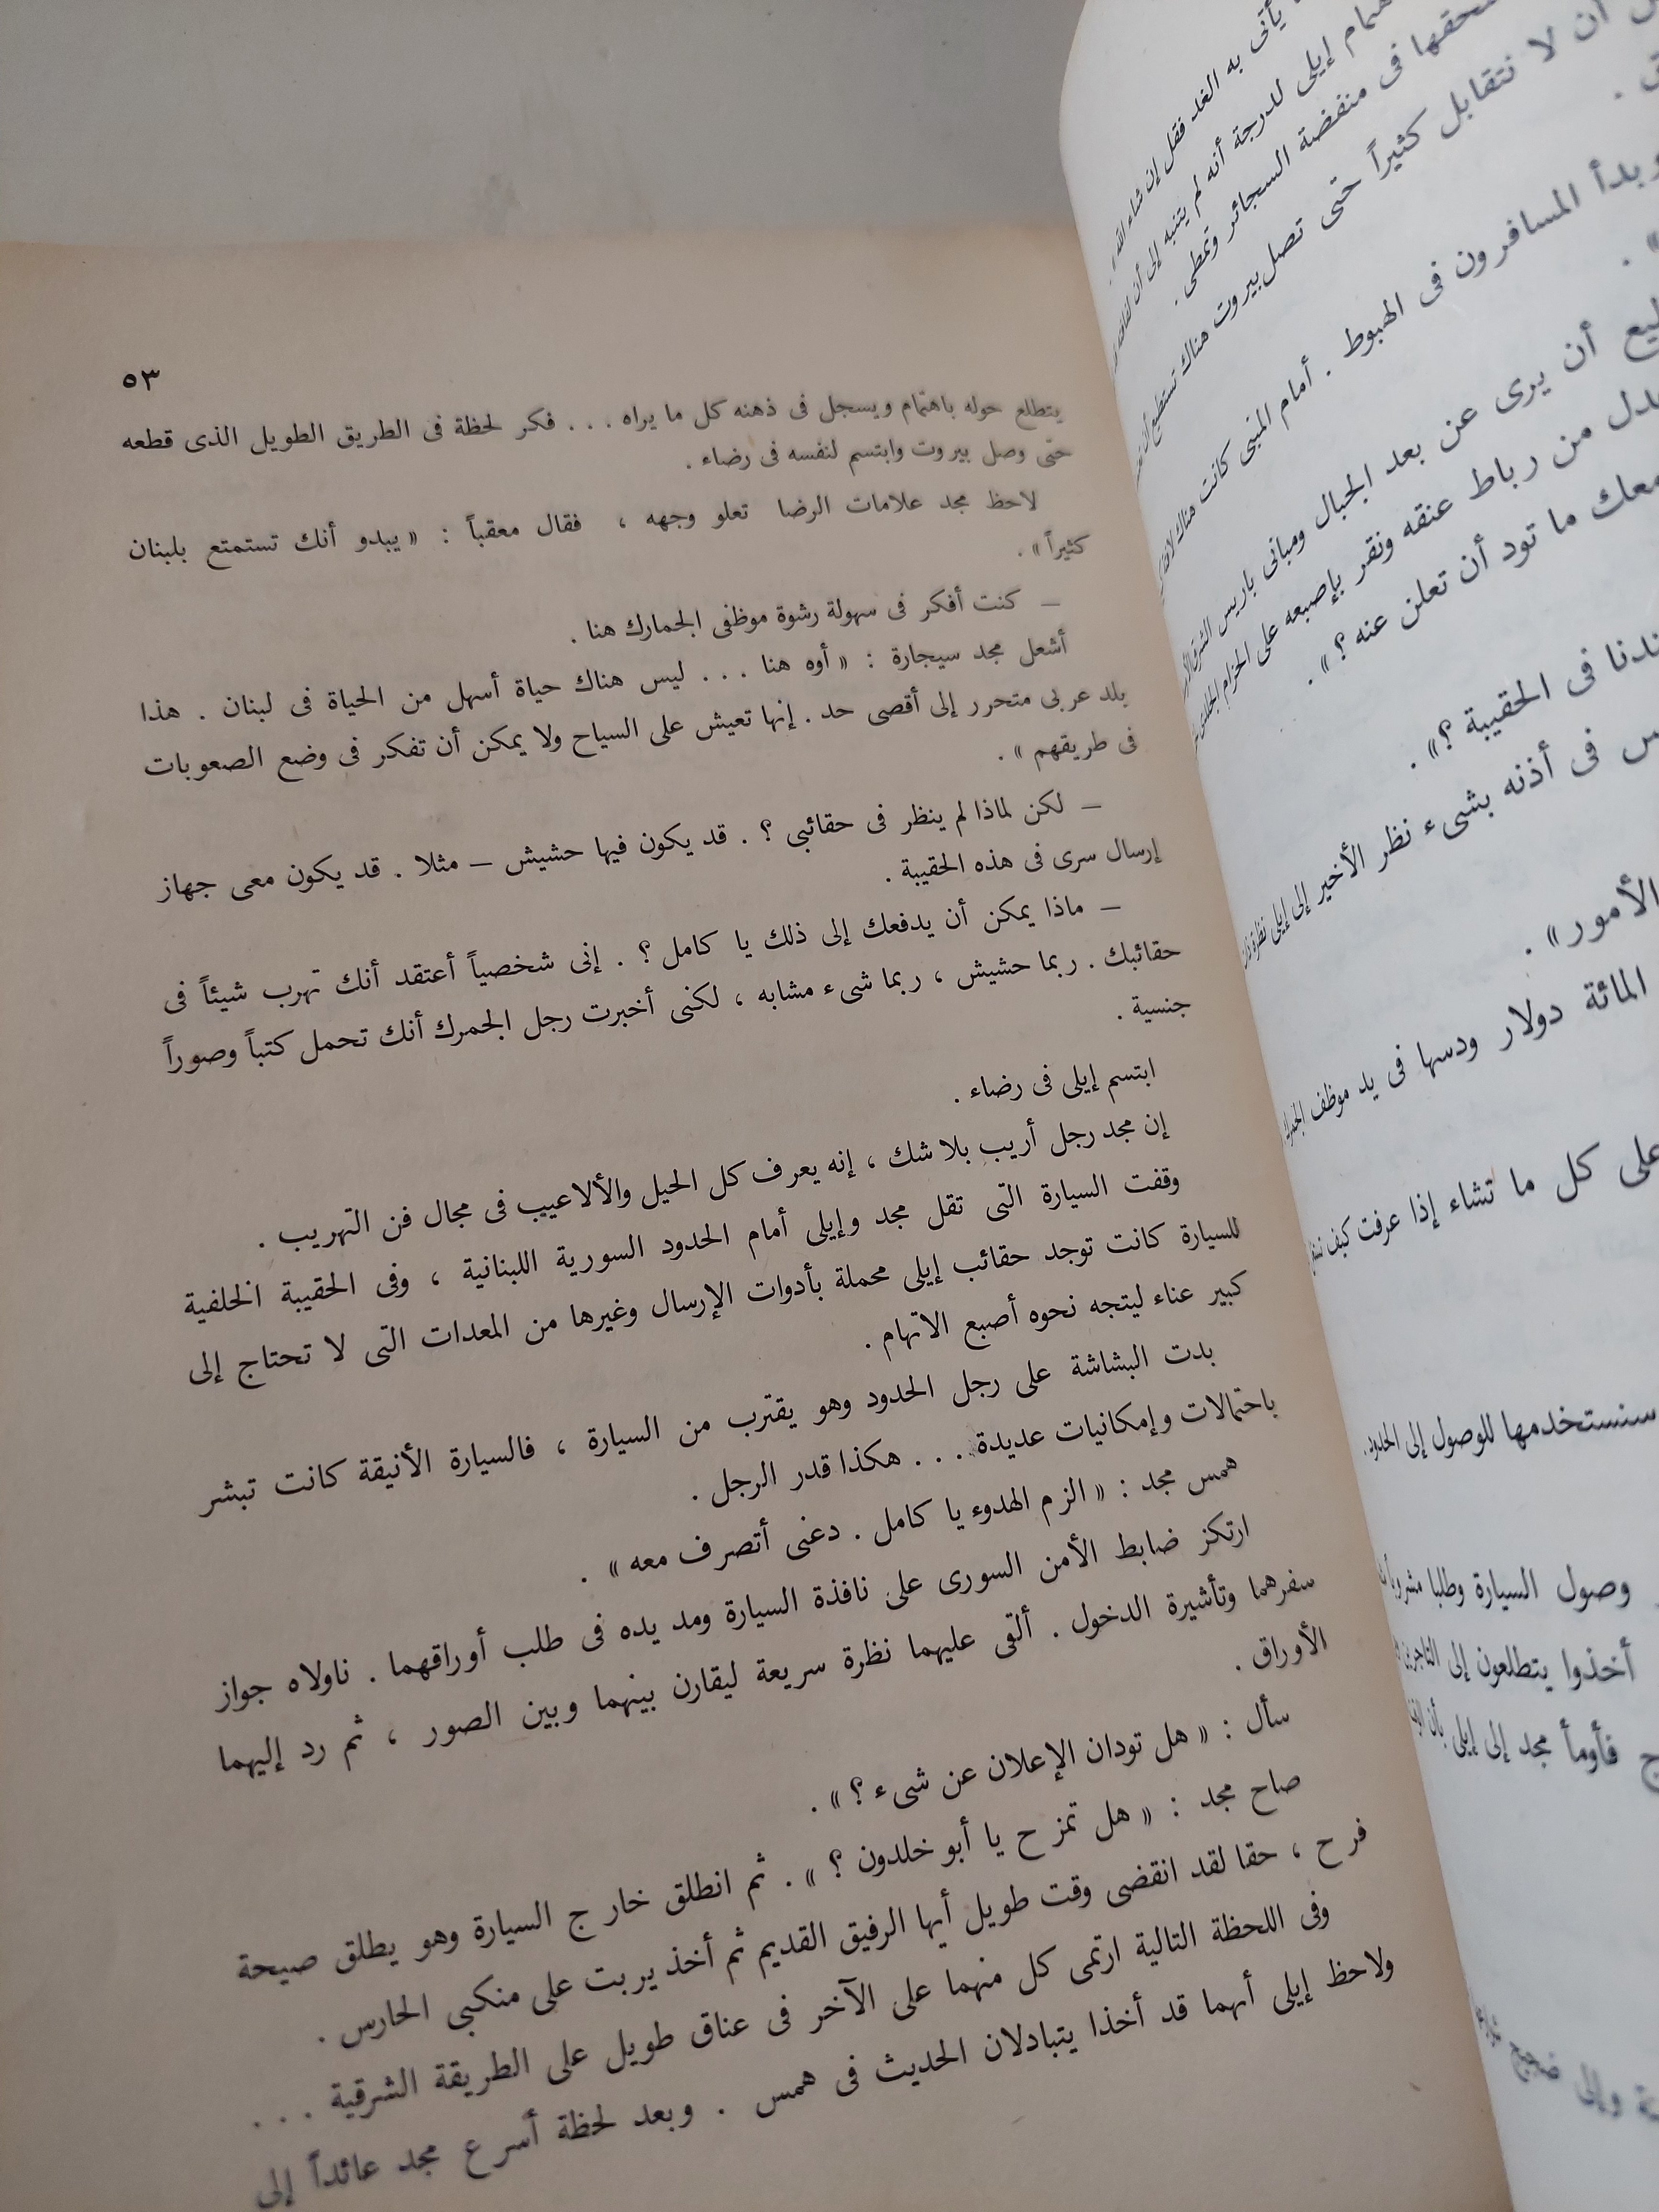 ٥٣
يتطلع حوله باهتمام ويسجل فى ذهنه كل ما يراه . . . فكر لحظة فى الطريق الطويل الذى قطعه
حتى وصل بيروت وابتسم لنفسه فى رضاء .
لاحظ مجد علامات الرضا تعلو وجهه ، فقال معقباً : « يبدو أنك تستمتع بلبنان
كثيراً » .
— كنت أفكر فى سهولة رشوة موظفى الجمارك هنا .
أشعل مجد سيجارة : « أوه هنا . . . ليس هناك حياة أسهل من الحياة فى لبنان . هذا
بلد عربى متحرر إلى أقصى حد . إنها تعيش على السياح ولا يمكن أن تفكر فى وضع الصعوبات
فى طريقهم » .
— لكن لماذا لم ينظر فى حقائبى ؟ . قد يكون فيها حشيش — مثلا . قد يكون معى جهاز
إرسال سرى فى هذه الحقيبة .
— ماذا يمكن أن يدفعك إلى ذلك يا كامل ؟ . إنى شخصياً أعتقد أنك تهرب شيئاً فى
حقائبك . ربما حشيش ، ربما شىء مشابه ، لكنى أخبرت رجل الجمرك أنك تحمل كتباً وصوراً
جنسية .
ابتسم إيلى فى رضاء .
إن مجد رجل أريب بلا شك ، إنه يعرف كل الحيل والألاعيب فى مجال فن التهريب .
وقفت السيارة التى تقل مجد وإيلى أمام الحدود السورية اللبنانية ، وفى الحقيبة الخلفية
للسيارة كانت توجد حقائب إيلى محملة بأدوات الإرسال وغيرها من المعدات التى لا تحتاج إلى
كبير عناء ليتجه نحوه أصبع الاتهام .
بدت البشاشة على رجل الحدود وهو يقترب من السيارة ، فالسيارة الأنيقة كانت تبشر
باحتمالات وإمكانيات عديدة . . . هكذا قدر الرجل .
همس مجد : « الزم الهدوء يا كامل . دعنى أتصرف معه » .
ارتكز ضابط الأمن السورى على نافذة السيارة ومد يده فى طلب أوراقهما . ناولاه جواز
سفرهما وتأشيرة الدخول . ألقى عليهما نظرة سريعة ليقارن بينهما وبين الصور ، ثم رد إليهما
الأوراق .
سأل : « هل تودان الإعلان عن شىء ؟ » .
صاح مجد : « هل تمزح يا أبو خلدون ؟ » . ثم انطلق خارج السيارة وهو يطلق صيحة
فرح ، حقا لقد انقضى وقت طويل أيها الرفيق القديم ثم أخذ يربت على منكبى الحارس .
وفى اللحظة التالية ارتمى كل منهما على الآخر فى عناق طويل على الطريقة الشرقية . . .
ولاحظ إيلى أنهما قد أخذا يتبادلان الحديث فى همس . وبعد لحظة أسرع مجد عائداً إلى
يأتى به الغد فقل إن شاء الله
إيلى لدرجة أنه لم يتنبه إلى أن
فى منفضة السجائر وتمطى .
أن لا نتقابل كثيراً حتى تصل بيروت هناك تستطيع
وبدأ المسافرون فى الهبوط . أمام المبنى كانت هناك
أن يرى عن بعد الجبال ومبانى باريس الشرق
من رباط عنقه ونقر بإصبعه على الحزام
معك ما تود أن تعلن عنه ؟ » .
فى الحقيبة ؟ » .
فى أذنه بشىء نظر الأخير إلى إيلى نظرة
الأمور » .
المائة دولار ودسها فى يد موظف
على كل ما تشاء إذا عرفت كيف
سنستخدمها للوصول إلى الحدود .
وصول السيارة وطلبا
أخذوا يتطلعون إلى
فأومأ مجد إلى إيلى بأن
وإلى ضجيج